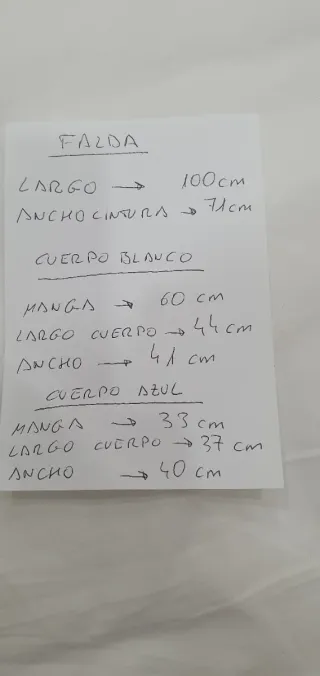 FALDA
LARGO → 100 cm
ANCHO CINTURA → 71 cm
CUERPO BLANCO
MANGA → 60 cm
LARGO CUERPO → 44 cm
ANCHO → 41 cm
CUERPO AZUL
MANGA → 33 cm
LARGO CUERPO → 37 cm
ANCHO → 40 cm